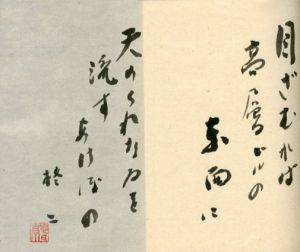 目ざむれば
高層ビルの
東面に
天のくれなゐを
流す
あけぼの
柊二